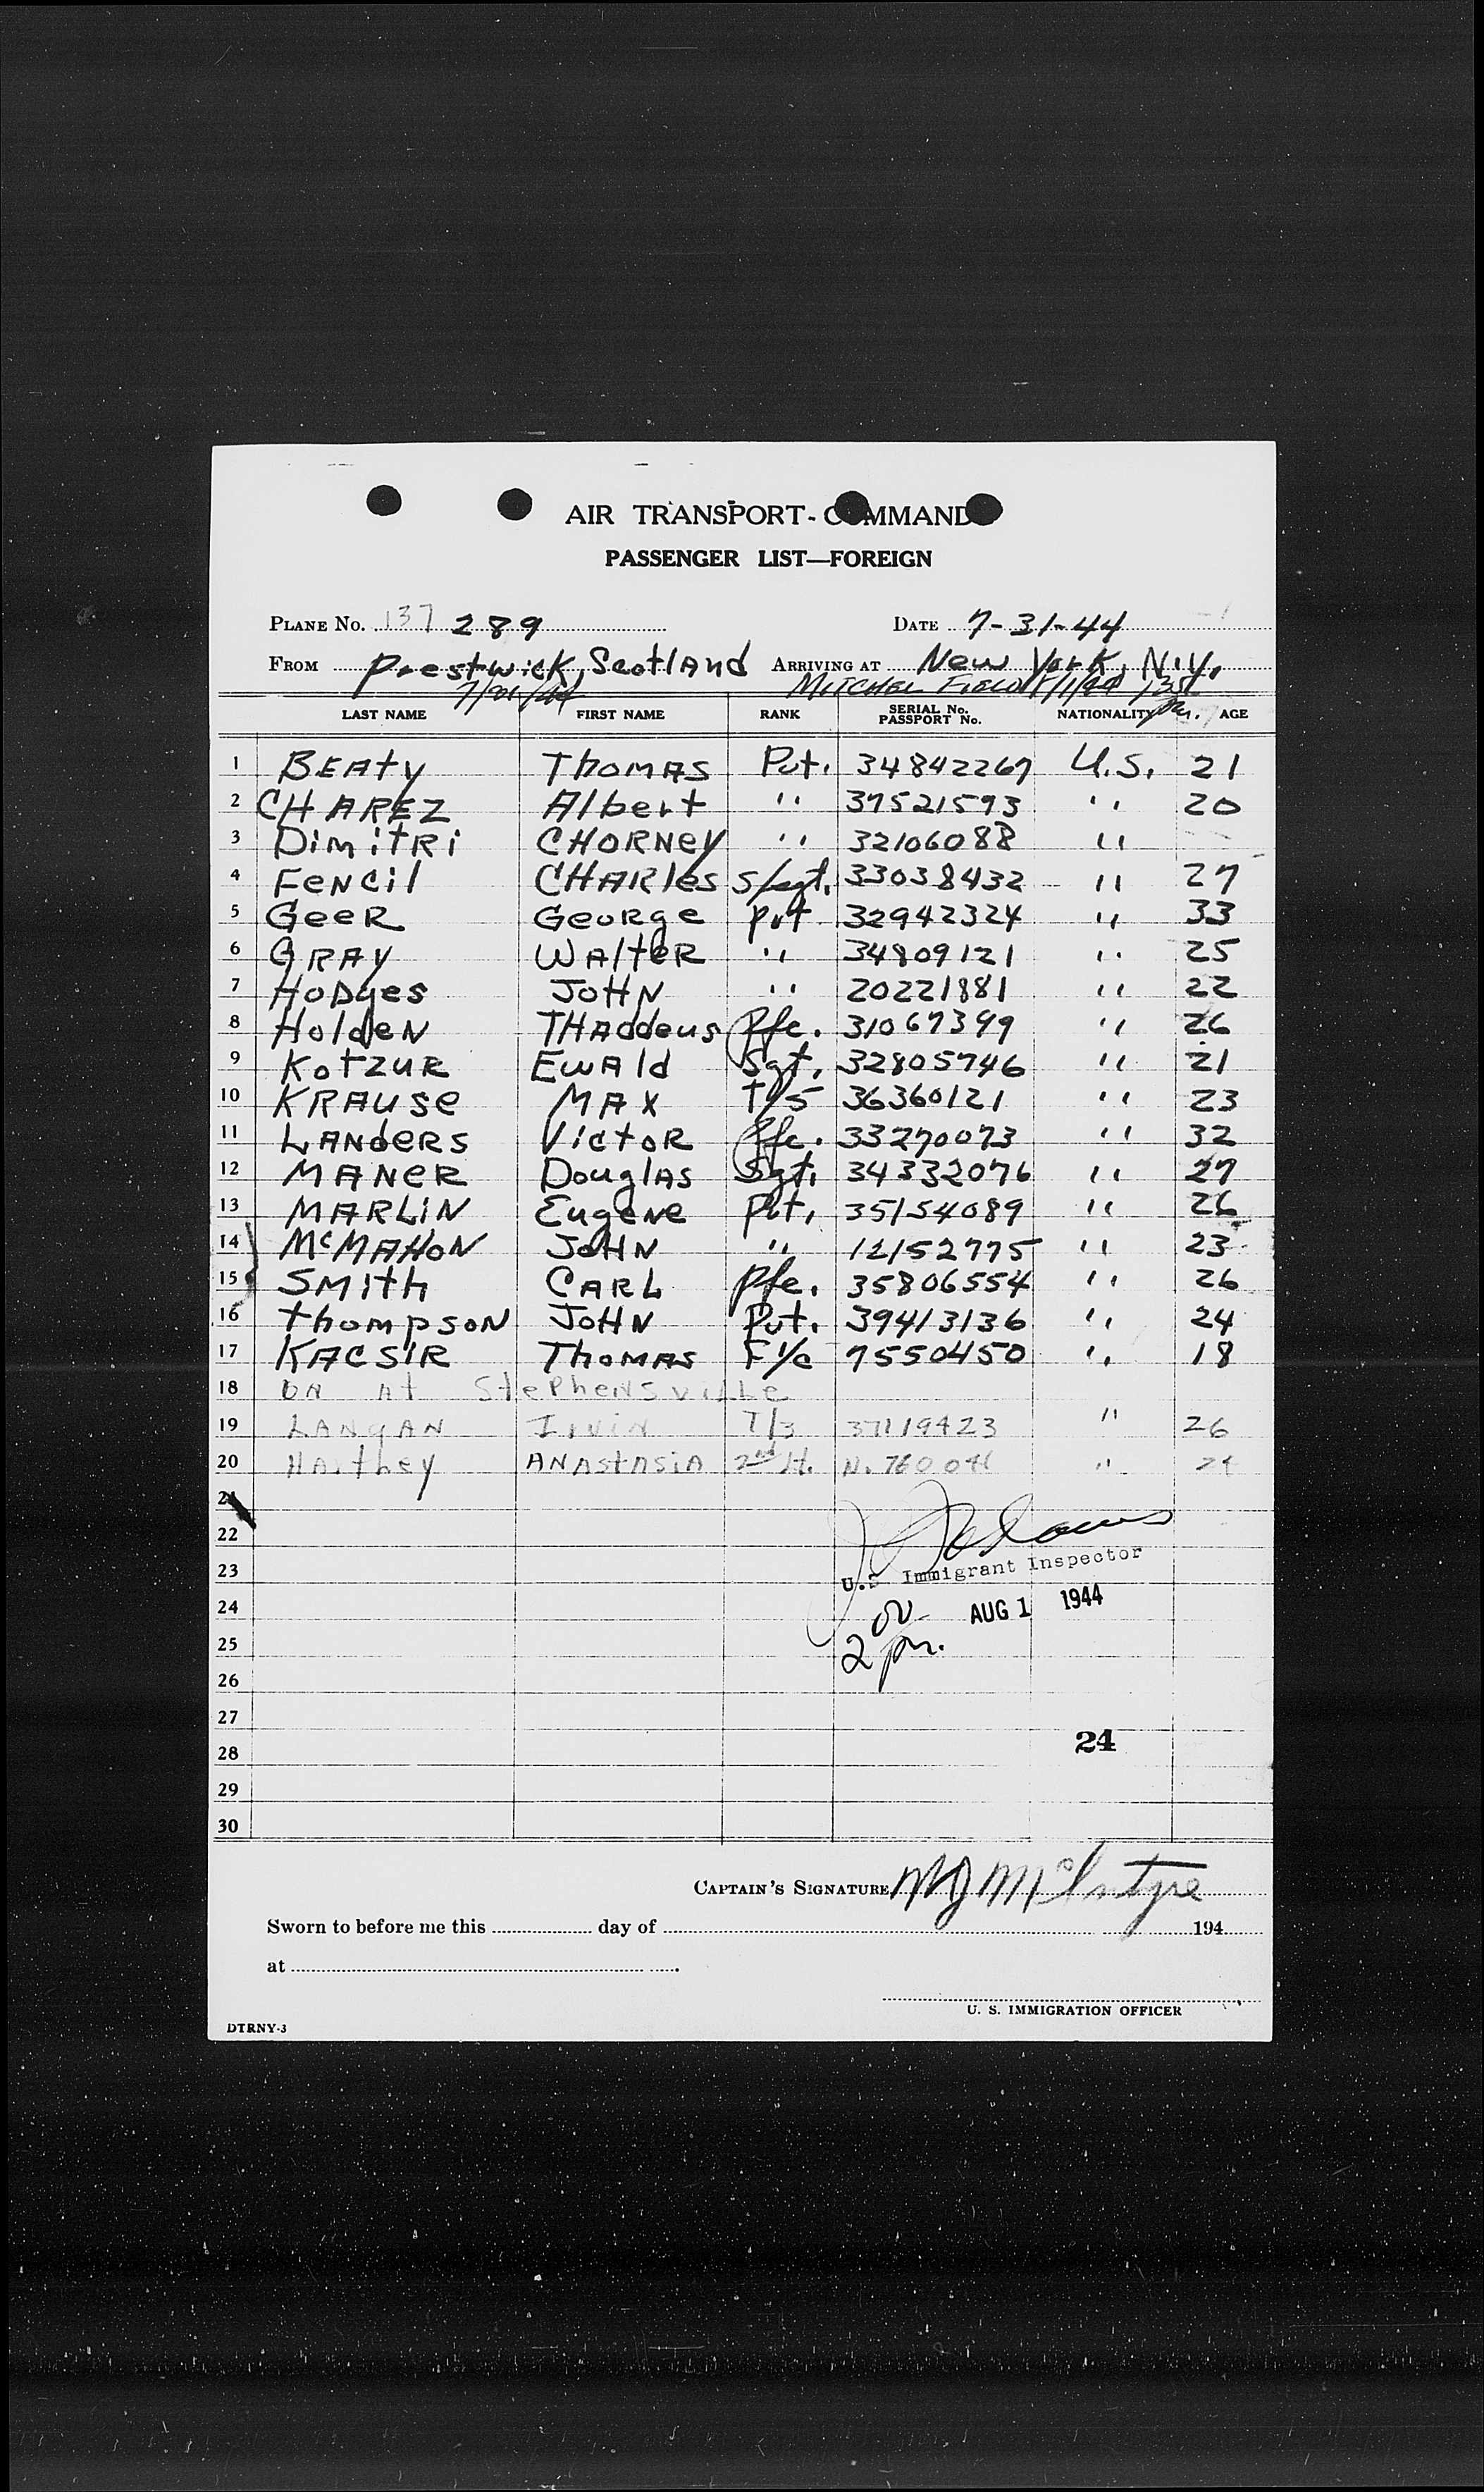 AIR TRANSPORT-COMMAND
PASSENGER LIST—FOREIGN
PLANE NO. 137 289 DATE 7-31-44
FROM Prestwick, Scotland ARRIVING AT New York, N.Y.
MITCHEL FIELD
LAST NAME FIRST NAME RANK SERIAL No. PASSPORT No. NATIONALITY AGE
1 BEAty THOMAS Pvt. 34842267 U.S. 21
2 CHAREZ Albert " 37521593 " 20
3 DimitRi CHORNey " 32106088 "
4 FeNcil CHARles S/sgt. 33038432 " 27
5 GeeR GeoRge pvt 32942324 " 33
6 GRAY WAlteR " 34809121 " 25
7 HoDges JoHN " 20221881 " 22
8 HoldeN THAddeus Pfc. 31067399 " 26
9 KotzuR EwAld Sgt. 32805746 " 21
10 KRAuse MAX T/5 36360121 " 23
11 LANdeRs VictoR Pfc. 33270073 " 32
12 MANeR DouglAs Sgt. 34332076 " 27
13 MARLiN EugeNe Pvt. 35154089 " 26
14 McMAHoN JoHN " 12152775 " 23
15 SMith CARL Pfc. 35806554 " 26
16 thompsoN JoHN Pvt. 39413136 " 24
17 KACSIR THOMAS F 1/c 7550450 " 18
18 ON At StePheNSville
19 LANgAN IRviN T/3 37119423 " 26
20 ANAstAsiA 2nd Lt. N. "
21
22
U.S. Immigrant Inspector
23
24 AUG 1 1944
25 2 pm.
26
27
24
28
29
30
CAPTAIN'S SIGNATURE MJ McIntyre
Sworn to before me this day of 194
at
U. S. IMMIGRATION OFFICER
DTRNY-3